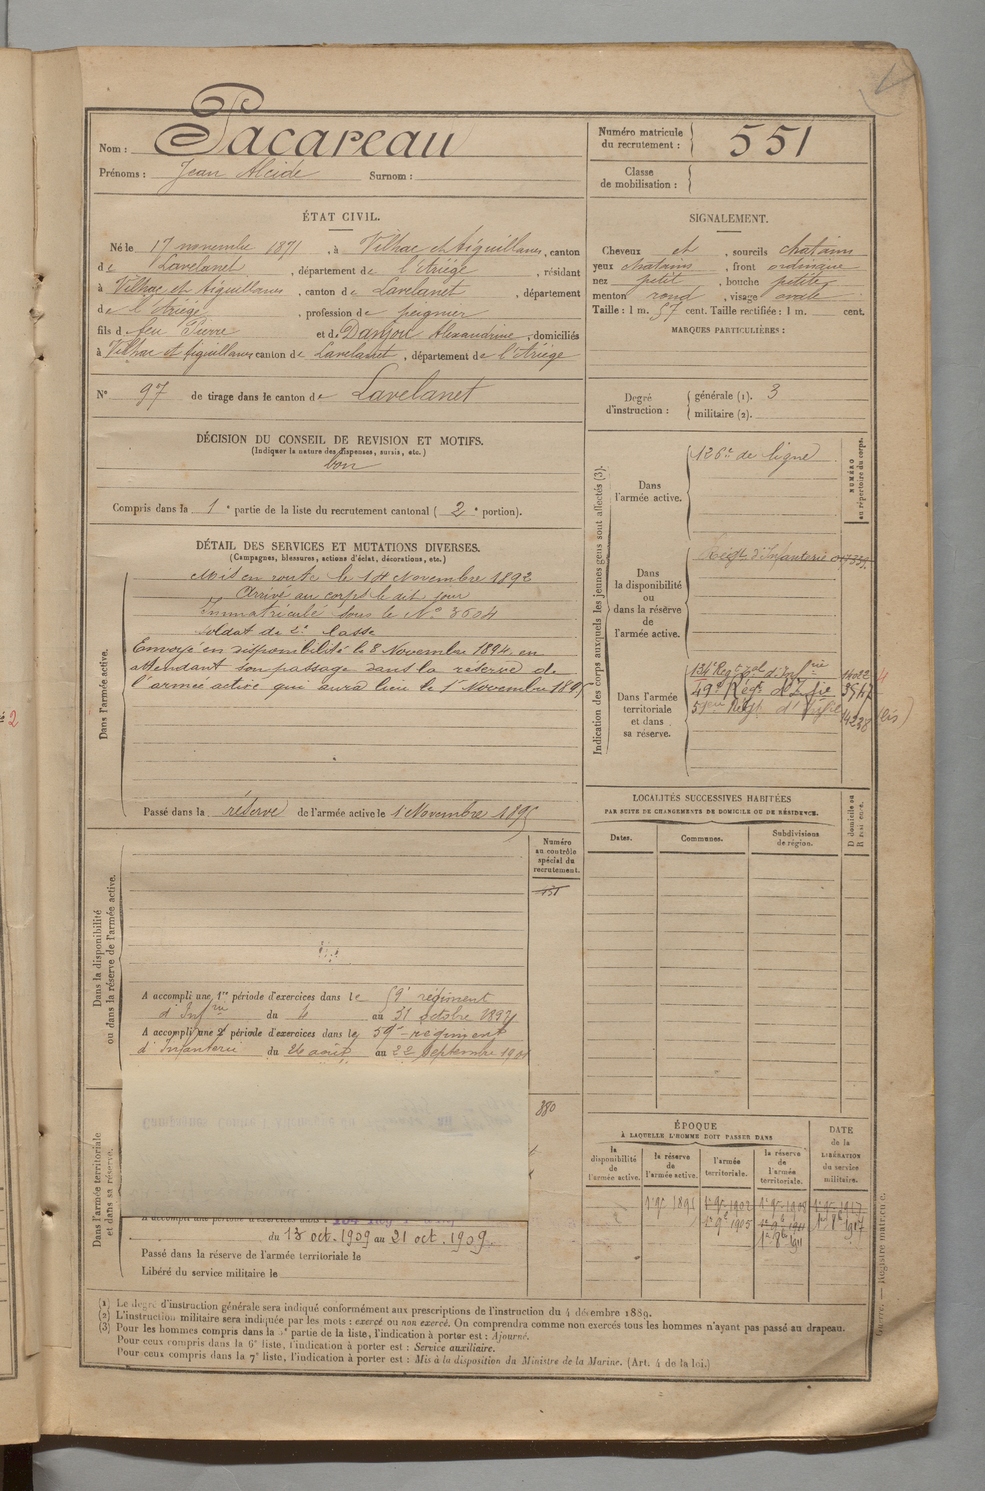 Nom : Pacareau
Prénoms : Jean Alcide Surnom :
Numéro matricule du recrutement : 551
Classe de mobilisation :
ÉTAT CIVIL.
Né le 17 novembre 1871, à Vilhac et Aiguillanes, canton
de Lavelanet, département de l'Ariège, résidant
à Vilhac et Aiguillanes, canton de Lavelanet, département
de l'Ariège, profession de peigneur
fils de feu Pierre et de Danjou Alexandrine, domiciliés
à Vilhac et Aiguillanes canton de Lavelanet, département de l'Ariège
N° 97 de tirage dans le canton de Lavelanet
SIGNALEMENT.
Cheveux et, sourcils chatains
yeux chatains, front ordinaire
nez petit, bouche petite
menton rond, visage ovale
Taille : 1 m. 57 cent. Taille rectifiée : 1 m. cent.
MARQUES PARTICULIÈRES :
Degré d'instruction : générale (1). 3
militaire (2).
DÉCISION DU CONSEIL DE REVISION ET MOTIFS.
(Indiquer la nature des dispenses, sursis, etc.)
bon
Compris dans la 1e partie de la liste du recrutement cantonal (2e portion).
DÉTAIL DES SERVICES ET MUTATIONS DIVERSES.
(Campagnes, blessures, actions d'éclat, décorations, etc.)
Dans l'armée active.
Mis en route le 14 Novembre 1892
Arrivé au corps le dit jour
Immatriculé sous le N° 3604
soldat de 2e classe
Envoyé en disponibilité le 8 Novembre 1894, en
attendant son passage dans la réserve de
l'armée active qui aura lieu le 1er Novembre 1895
Passé dans la réserve de l'armée active le 1 Novembre 1895
Indication des corps auxquels les jeunes gens sont affectés (3).
NUMÉRO au répertoire du corps.
Dans l'armée active.
126e de ligne
Dans la disponibilité ou dans la réserve de l'armée active.
Régt d'Infanterie
Dans l'armée territoriale et dans sa réserve.
134e Regt tal d'Infrie
49e Régt d'Infie
Régt d'Infie 14238 (bis)
LOCALITÉS SUCCESSIVES HABITÉES
PAR SUITE DE CHANGEMENTS DE DOMICILE OU DE RÉSIDENCE.
Dates. Communes. Subdivisions de région. D domicile ou R résidence.
Dans la disponibilité ou dans la réserve de l'armée active.
Numéro au contrôle spécial du recrutement.
A accompli une 1re période d'exercices dans le 59e régiment
d'Infrie du 4 au 31 octobre 1897
A accompli une 2e période d'exercices dans le 59e régiment
d'Infanterie du 26 août au 22 septembre 1901
Dans l'armée territoriale et dans sa réserve.
880
du 13 oct. 1909 au 21 oct. 1909.
Passé dans la réserve de l'armée territoriale le
Libéré du service militaire le
ÉPOQUE
À LAQUELLE L'HOMME DOIT PASSER DANS
la disponibilité de l'armée active. la réserve de l'armée active. l'armée territoriale. la réserve de l'armée territoriale.
DATE de la LIBÉRATION du service militaire.
(1) Le degré d'instruction générale sera indiqué conformément aux prescriptions de l'instruction du 4 décembre 1889.
(2) L'instruction militaire sera indiquée par les mots : exercé ou non exercé. On comprendra comme non exercés tous les hommes n'ayant pas passé au drapeau.
(3) Pour les hommes compris dans la 3e partie de la liste, l'indication à porter est : Ajourné.
Pour ceux compris dans la 6e liste, l'indication à porter est : Service auxiliaire.
Pour ceux compris dans la 7e liste, l'indication à porter est : Mis à la disposition du Ministre de la Marine. (Art. 4 de la loi.)